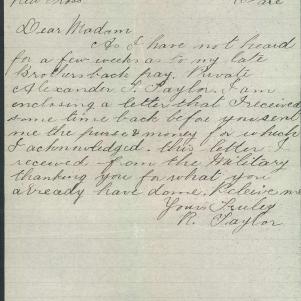 New Cross
Dear Madam
As I have not heard
for a few weeks as to my late
Brothers back pay. Private
Alexander S. Taylor. I am
enclosing a letter that I received
some time back before you sent
me the purse & money for which
I acknowledged. this letter I
received from the Military
thanking you for what you
already have done. Releive me
Yours Truley
R. Taylor